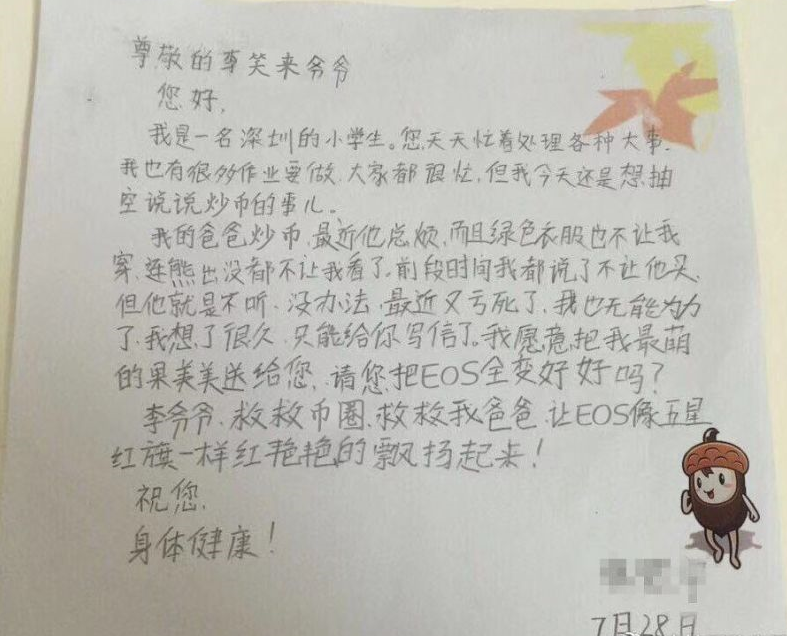 尊敬的李笑来爷爷
您好，
我是一名深圳的小学生。您天天忙着处理各种大事，
我也有很多作业要做，大家都很忙，但我今天还是想抽
空说说炒币的事儿。
我的爸爸炒币，最近他总烦，而且绿色衣服也不让我
穿，连熊出没都不让我看了，前段时间我都说了不让他买，
但他就是不听，没办法，最近又亏死了，我也无能为力
了，我想了很久，只能给你写信了。我愿意把我最萌
的果美美送给您，请您把EOS全变好好吗？
李爷爷，救救币圈，救救我爸爸，让EOS像五星
红旗一样红艳艳的飘扬起来！
祝您，
身体健康！
7月28日